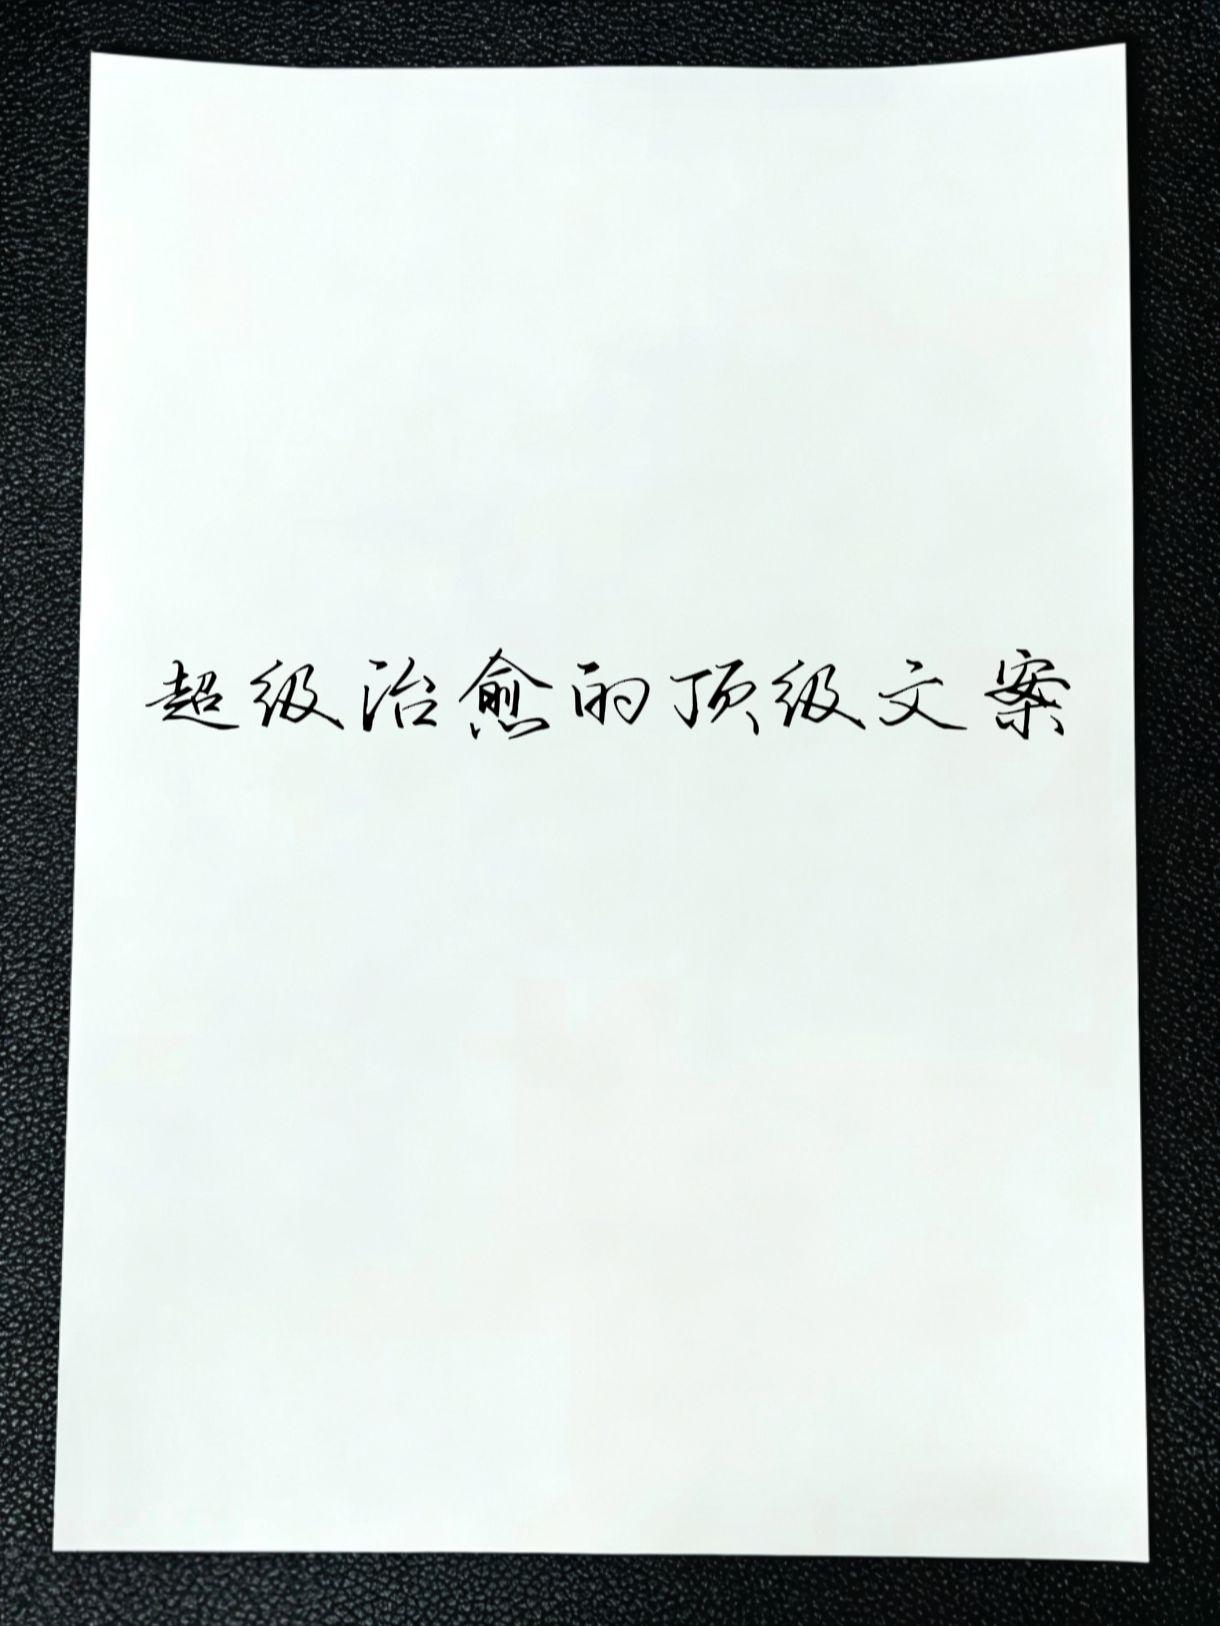 超级治愈的顶级文案